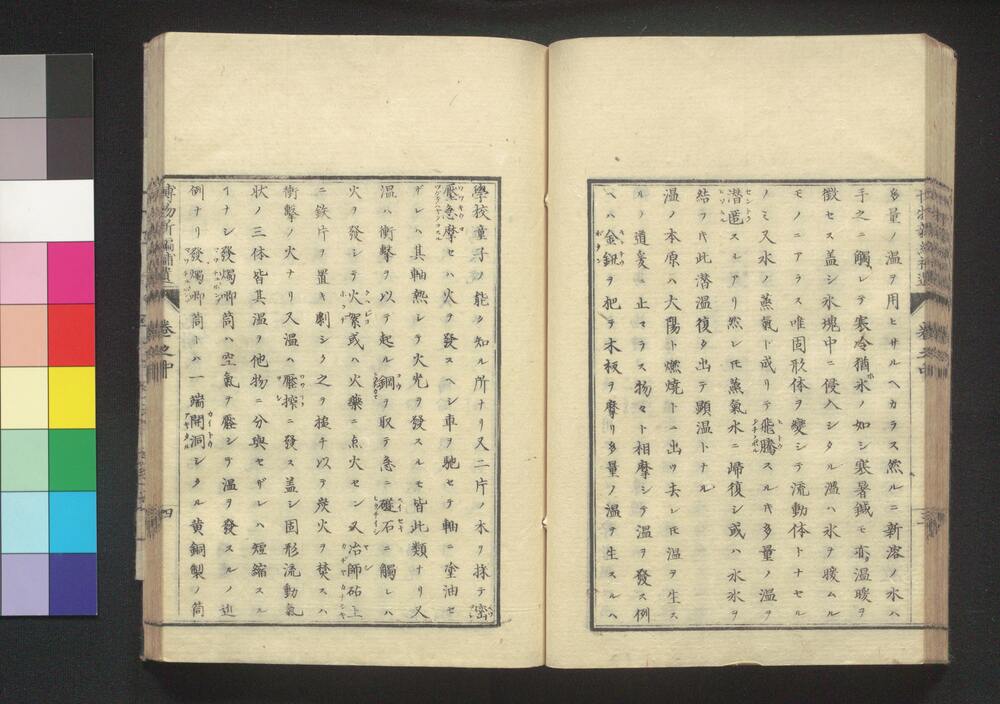 多量ノ温ヲ用ヒサルヘカラス然ルニ新溶ノ水ハ
手之ニ觸レテ寒冷猶氷ノ如シ寒暑鍼モ亦温暖ヲ
徴セス盖シ氷塊中ニ侵入シタル温ハ氷ヲ暖ムル
モノニアラス唯固形体ヲ變シテ流動体トナセル
ノミ又水ノ蒸氣ト成リテ飛騰スル片多量ノ温ヲ
潜匿スレアリ然レ𪜈蒸氣水ニ歸復シ或ハ水氷ヲ
結フ片此潜温復タ出テ顯温トナル
温ノ本原ハ大陽ト燃燒トニ出ツ去レ𪜈温ヲ生ス
ルノ道爰ニ止マラス物々ト相摩シテ温ヲ發ス例
ヘハ金釦ヲ把テ木板ヲ摩リ多量ノ温ヲ生スルハ
學校童子ノ能ク知ル所ナリ又二片ノ木ヲ採テ密
壓急摩セハ火ヲ發スヘシ車ヲ馳セテ軸ニ塗油セ
ザレハ其軸熱シテ火光ヲ發スルモ皆此類ナリ又
温ハ衝撃ヲ以テ起ル鋼ヲ取テ急ニ礎石ニ觸レハ
火ヲ發シテ火絮或ハ火藥ニ点火セン又冶師砧上
ニ鉄片ヲ置キ劇シク之ヲ撻チ以テ炭火ヲ焚スハ
衝撃ノ火ナリ又温ハ壓搾ニ發ス盖シ固形流動氣
状ノ三体皆其温ヲ他物ニ分與セザレハ短縮スル
イナシ發燭喞筒ハ空氣ヲ壓シテ温ヲ發スルノ近
例ナリ發燭喞筒トハ一端開洞シタル黄銅製ノ筒
博物新編補遺 卷之中 四